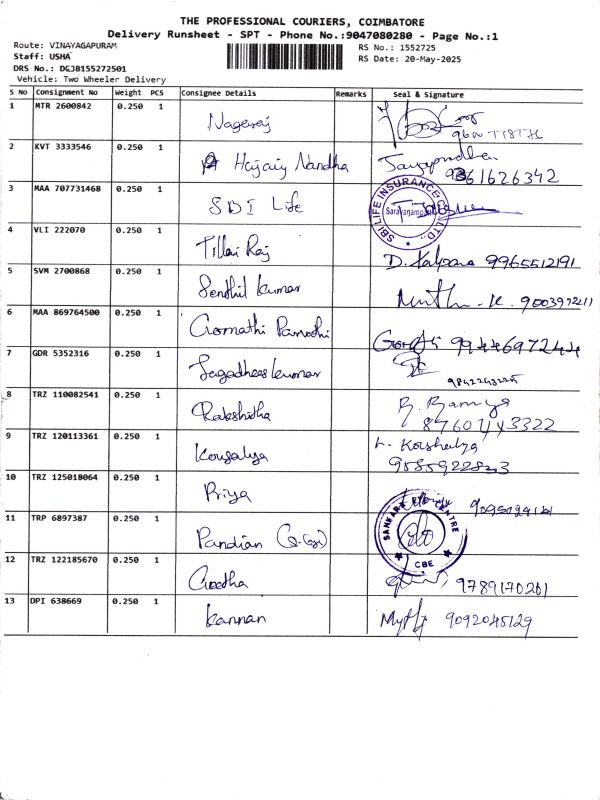 THE PROFESSIONAL COURIERS, COIMBATORE
Delivery Runsheet - SPT - Phone No.:9047080280 - Page No.:1
Route: VINAYAGAPURAM
Staff: USHA
DRS No.: DGJB155272501
Vehicle: Two Wheeler Delivery
RS No.: 1552725
RS Date: 20-May-2025
S No Consignment No Weight PCS Consignee Details Remarks Seal & Signature
1 MTR 2600842 0.250 1 Nagaraj
2 KVT 3333546 0.250 1 Nandha 9361626342
3 MAA 707731468 0.250 1 SBI Life SBI LIFE INSURANCE CO. LTD.
4 VLI 222070 0.250 1 Tillai Raj D. Kalpana 9965512191
5 SVM 2700868 0.250 1 Senthil kumar Muthu. K. 9003972211
6 MAA 869764500 0.250 1 Gomathi 9944697244
7 GDR 5352316 0.250 1 Jegadheeskumar 9842243225
8 TRZ 110082541 0.250 1 Rakshidha R. Ramya 8760743322
9 TRZ 120113361 0.250 1 Kousalya Koushalya
10 TRZ 125018064 0.250 1 Priya
11 TRP 6897387 0.250 1 Pandian SANKARA EYE CENTRE CBE
12 TRZ 122185670 0.250 1 Geetha 9789170261
13 DPI 638669 0.250 1 Kannan 9092045129